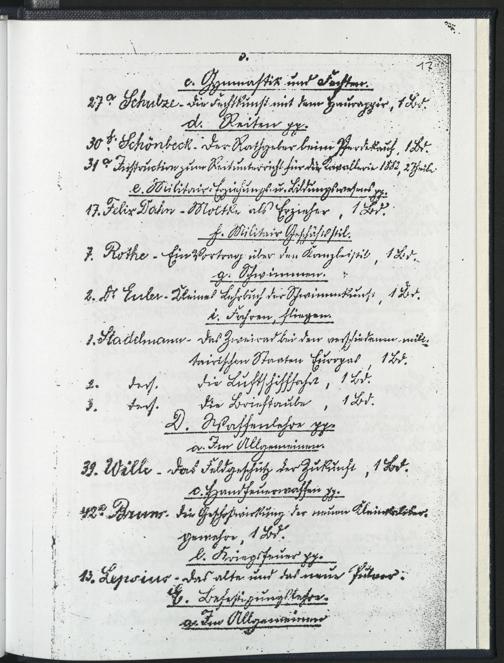 5.
13
c. Gymnastik und Fechten.
27a Schulze - die Fechtkunst mit dem Haurappir, 1 Bd.
d. Reiten pp.
30 f. Schönbeck - der Rathgeber beim Pferdekauf, 1 Bd.
31a Instruction zum Reitunterricht für die Kavallerie 1882, 2 Theile
e. Militair-Erziehungs u. Bildungswesens pp.
17. Felix Dahn - Moltke als Erzieher, 1 Bd.
f. Militair Geschäftsstil.
7. Rothe - Ein Vortrag über den Kanzleistil, 1 Bd.
g. Schwimmen.
2. Dr Euler - Kleines Lehrbuch der Schwimmkunst, 1 Bd.
i. Fahren, fliegen.
1. Stadelmann - das Zweirad bei den verschiedenen mili-
tairischen Staaten Europas 1 Bd.
2. ders. die Luftschifffahrt, 1 Bd.
3. ders. die Brieftaube, 1 Bd.
D. Waffenlehre pp.
a. Im Allgemeinen.
39. Wille - das Feldgeschütz der Zukunft, 1 Bd.
c. Handfeuerwaffen pp.
42a Bruns - die Geschoßwirkung der neuen Kleinkaliber-
gewehre, 1 Bd.
l. Kriegsfeuer pp.
13. Lepsius - das alte und das neue Pulver.
E. Befestigungslehre.
a. Im Allgemeinen